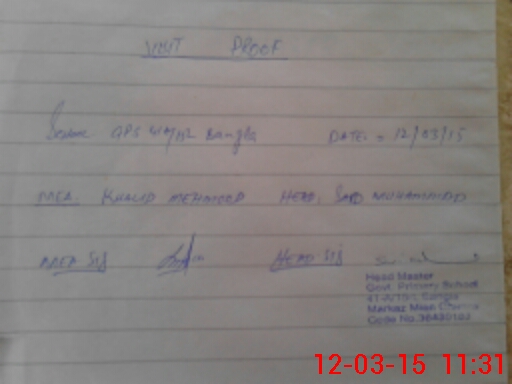 VISIT PROOF
School GPS 41/12L Bangla DATE = 12/03/15
MEA: KHALID MEHMOOD HEAD: SAID MUHAMMAD
MEA SIG HEAD SIG
Head Master
Govt. Primary School
Bangla
Markaz Mian
Code No.
12-03-15 11:31